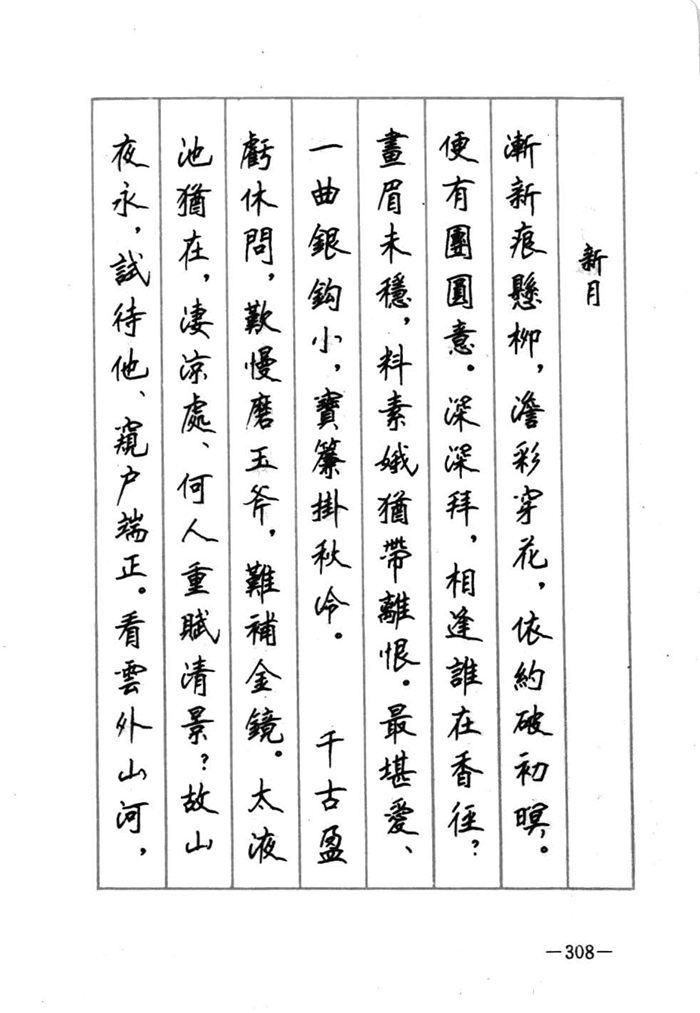 新月
漸新痕懸柳，澹彩穿花，依約破初暝。
便有團圓意。深深拜，相逢誰在香徑？
畫眉未穩，料素娥猶帶離恨。最堪愛、
一曲銀鈎小，寶簾掛秋冷。　千古盈
虧休問，歎慢磨玉斧，難補金鏡。太液
池猶在，淒涼處、何人重賦清景？故山
夜永，試待他、窺户端正。看雲外山河，
—308—